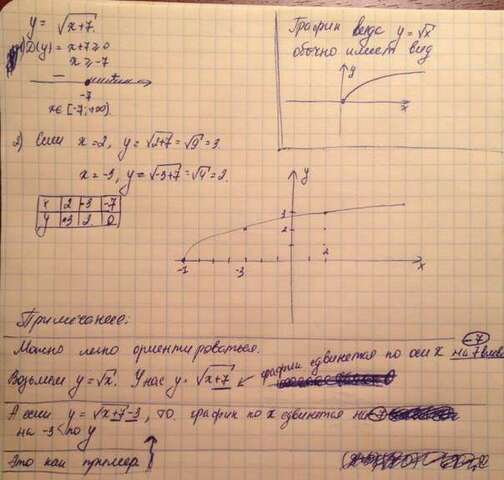 y = √x+7
1) D(y) = x+7≥0
x ≥ -7
-7
x∈[-7;+∞).
График вида y = √x
обычно имеет вид
y
x
2) Если x=2, y = √2+7 = √9 = 3.
x = -3, y = √-3+7 = √4 = 2.
x 2 -3 -7
y 3 2 0
y
3
2
-7 -3 2 x
Примечание:
Можно легко ориентироваться.
Возьмём y = √x. У нас y = √x+7 график сдвинется по оси x на 7 влево
-7
А если y = √x+7-3, то график по x сдвинется на -7
на -3 по y
Это как пример